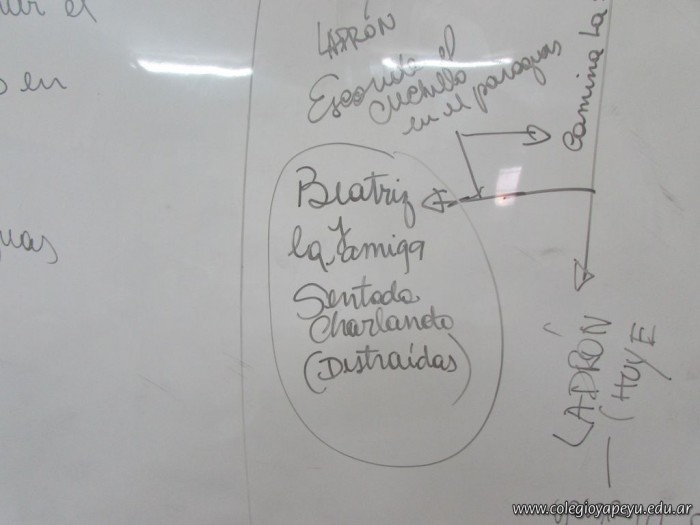 ar el
en
LADRÓN
Esconde el
cuchillo
en el paraguas
Camina La
Beatriz
y
la amiga
Sentada
Charlando
(Distraídas)
LADRÓN
(HUYE
www.colegioyapeyu.edu.ar